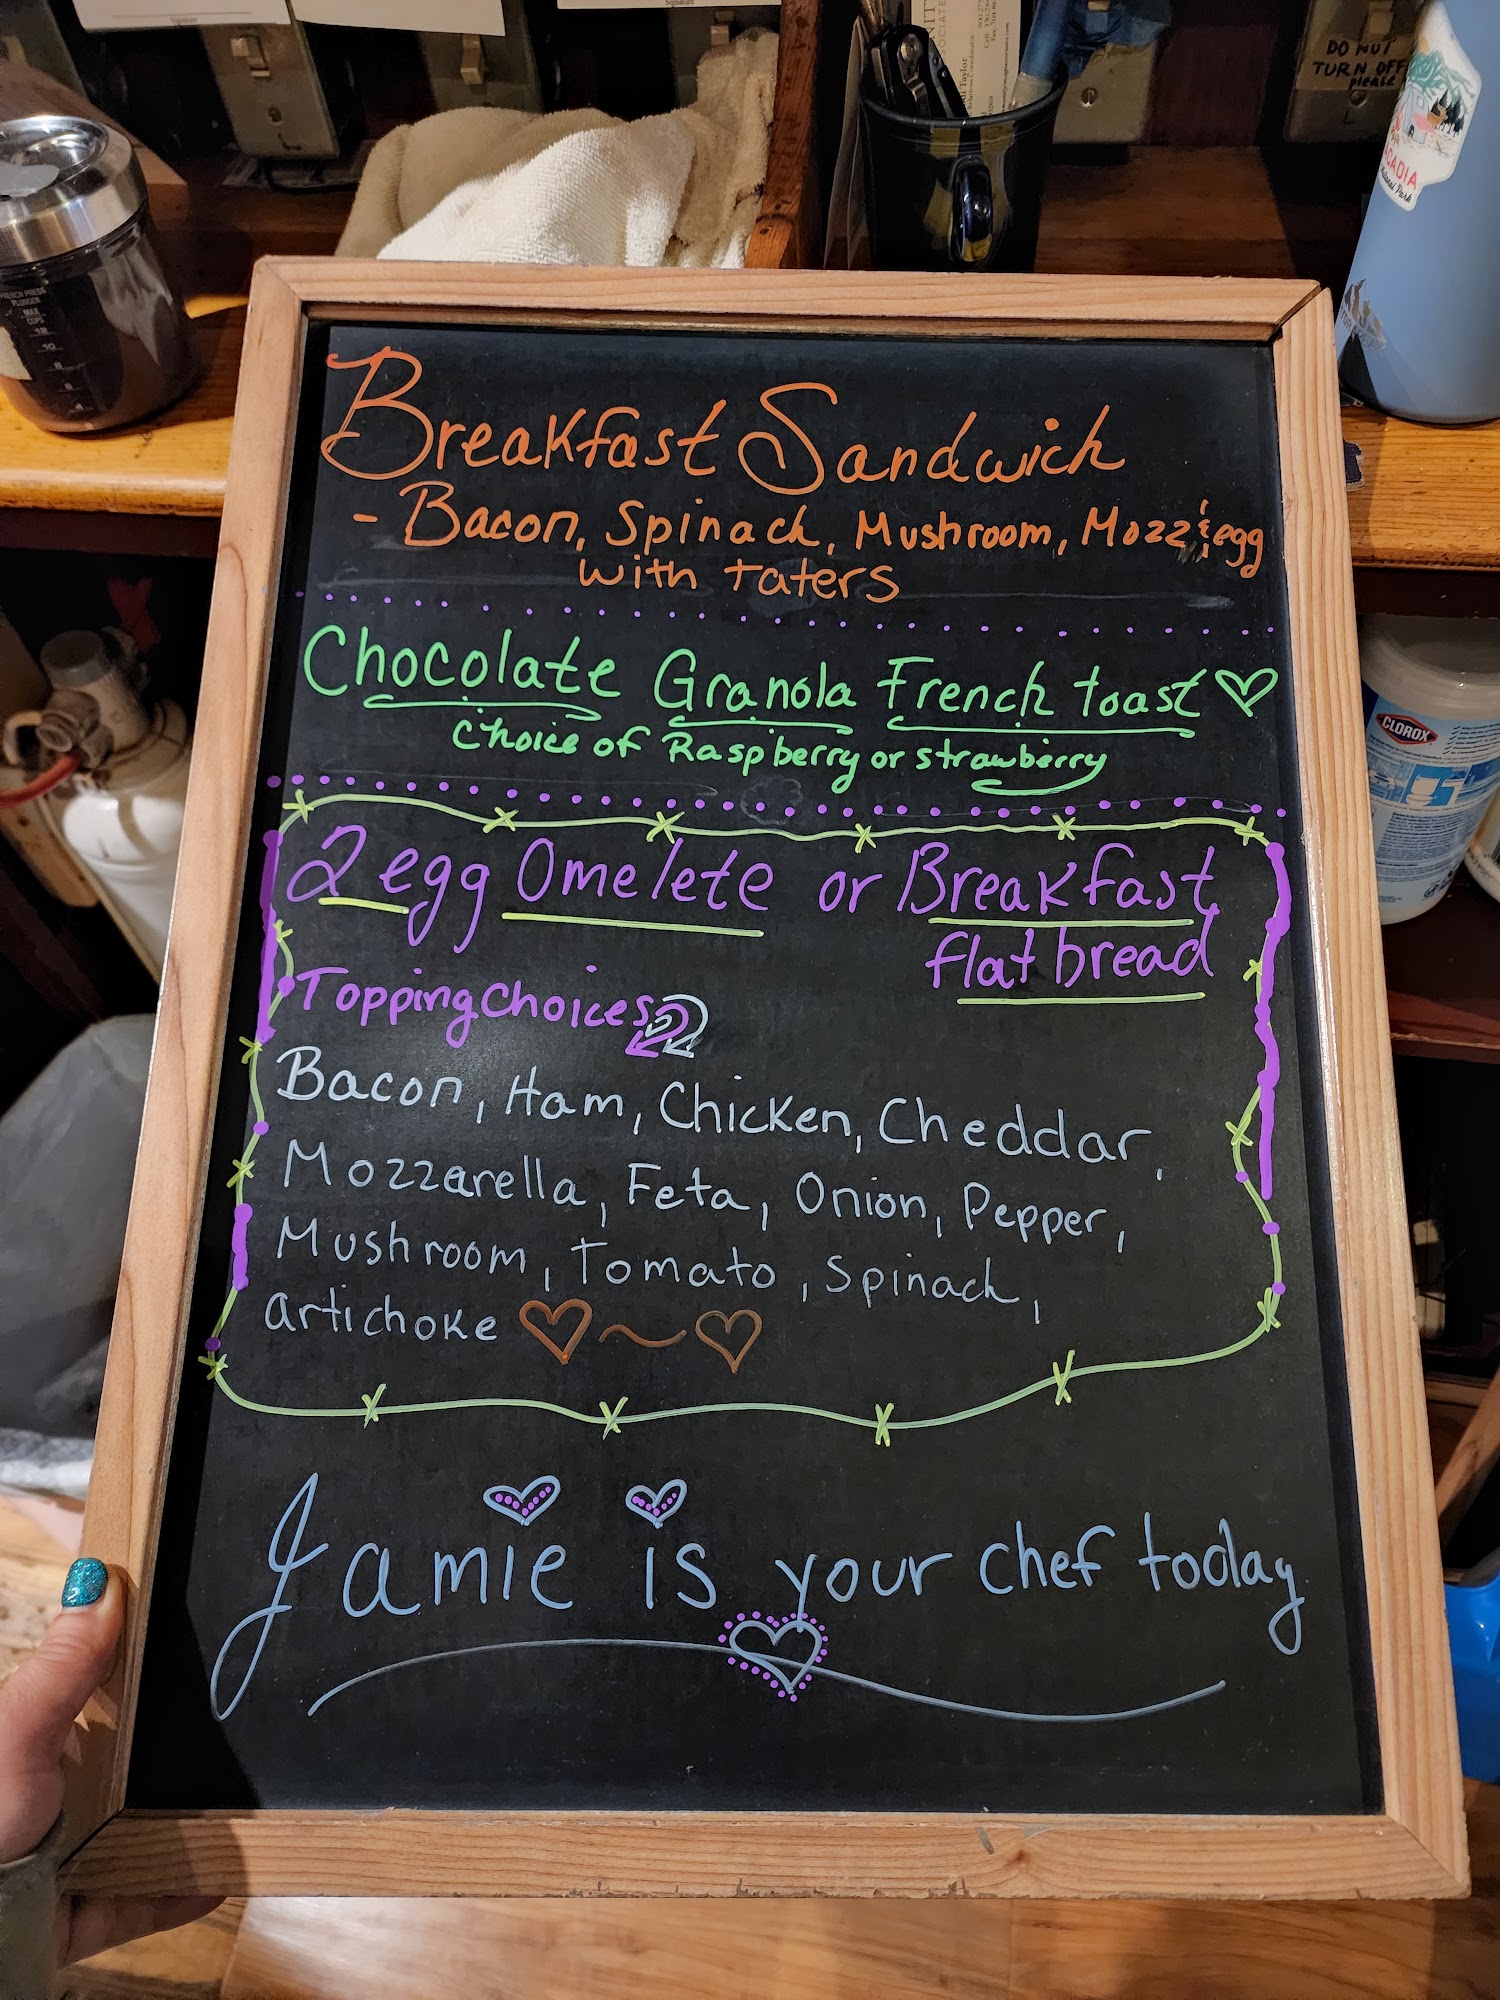 Signature
Signature
DO NOT
TURN OFF
please
ACADIA
National Park
FRENCH PRESS
PLUNGER
MAX
CUPS
12
10
8
6
4
Taylor
CLOROX
Breakfast Sandwich
- Bacon, Spinach, Mushroom, Mozz & egg
with taters
Chocolate Granola French toast
Choice of Raspberry or strawberry
2 egg Omelete or Breakfast
flat bread
Topping Choices
Bacon, Ham, Chicken, Cheddar,
Mozzarella, Feta, Onion, Pepper,
Mushroom, Tomato, Spinach,
artichoke
Jamie is your chef today